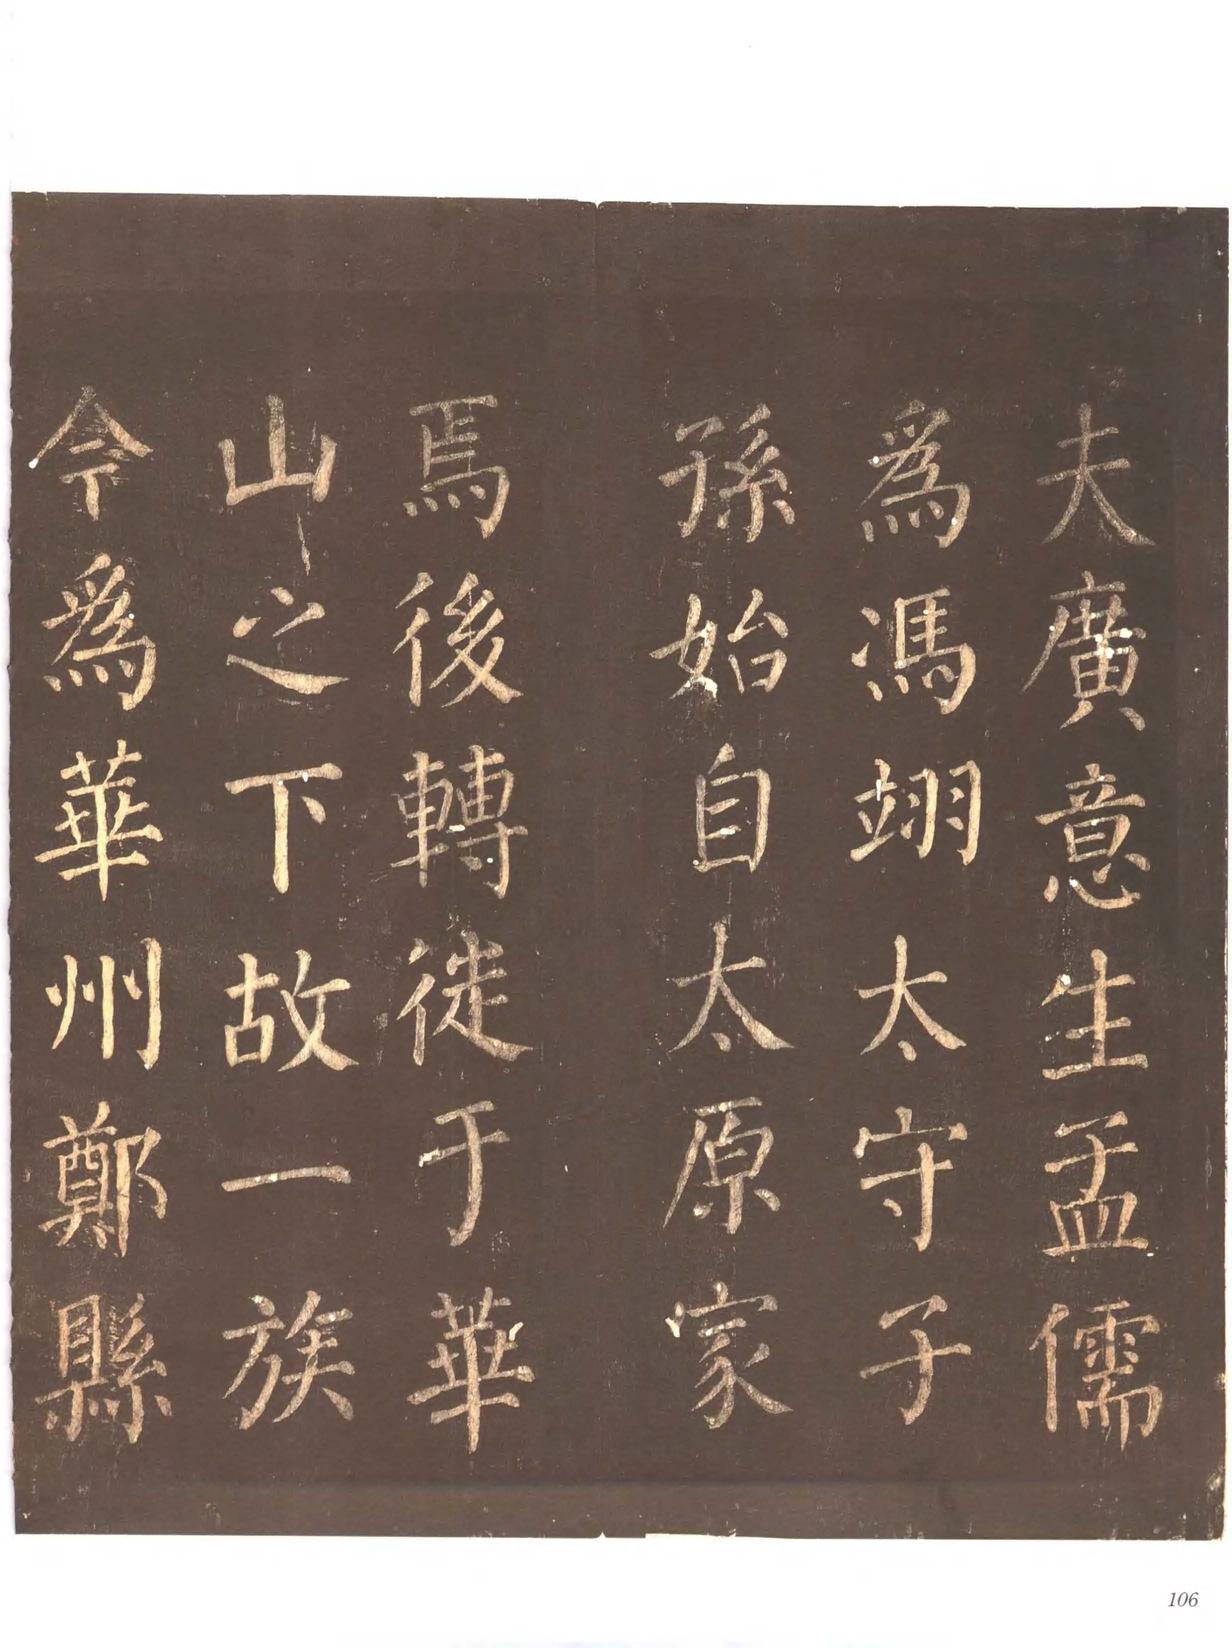 夫廣意生孟儒
為馮翊太守子
孫始自太原家
焉後轉徙于華
山之下故一族
今為華州鄭縣
106